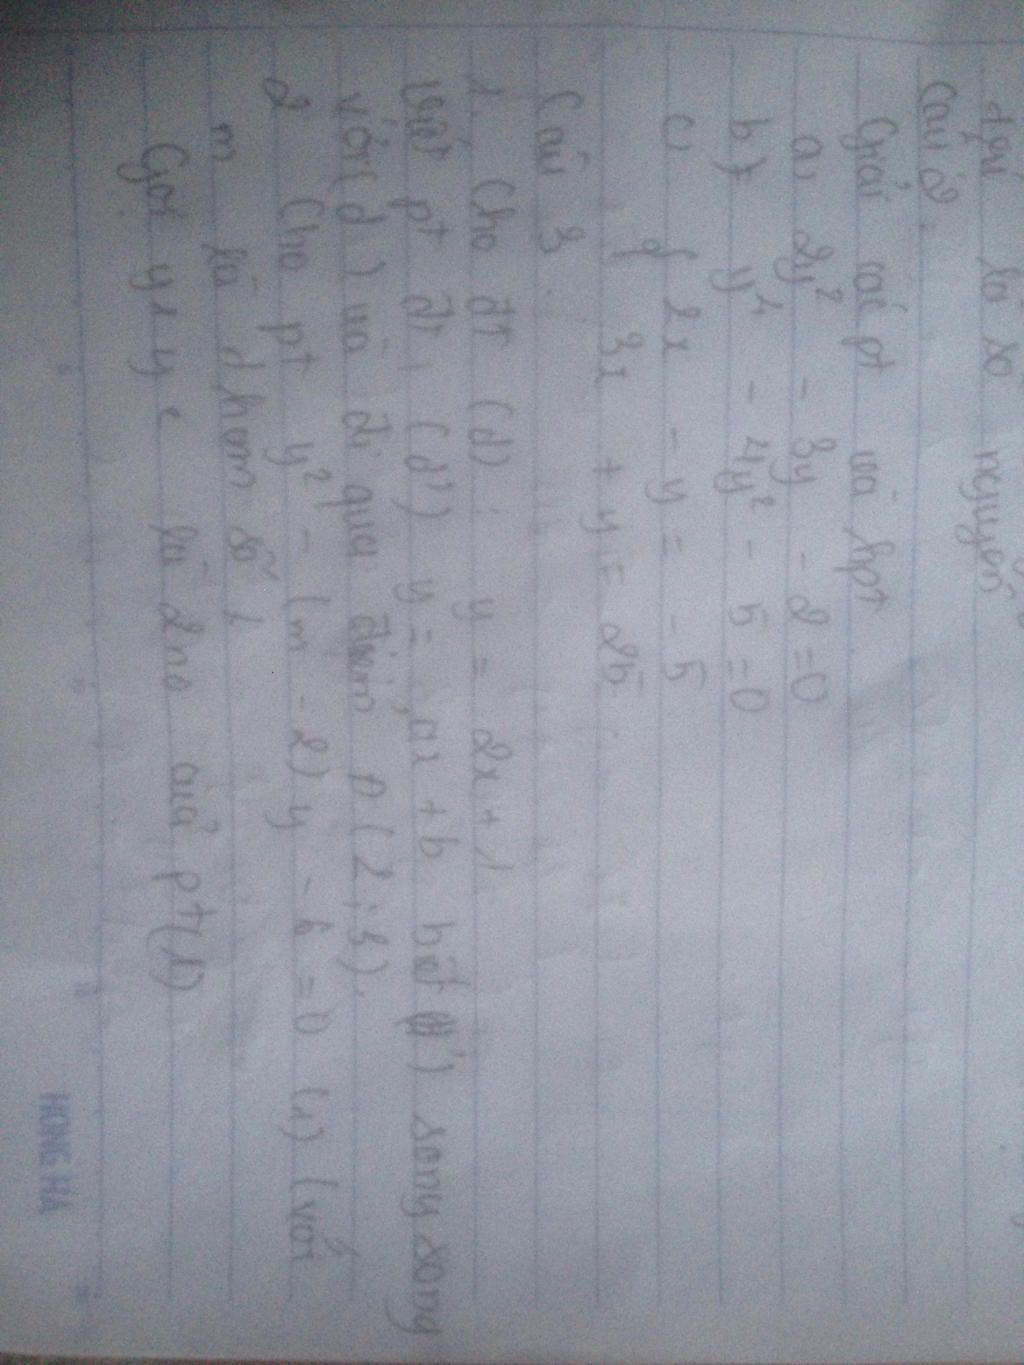 đều là số nguyên
Câu 2:
Giải các pt và hpt
a, 2y² - 3y - 2 = 0
b, y⁴ - 4y² - 5 = 0
c, { 2x - y = -5
3x + y = 25
Câu 3
1. Cho đt (d): y = 2x + 1
viết pt đt, (d') y = ax + b biết (d') song song
với (d) và đi qua điểm A (2; 3).
2 Cho pt y² - (m - 2)y - 6 = 0 (1) (với
m là tham số)
Gọi y1 y2 là 2 no của pt(1)
HONG HA